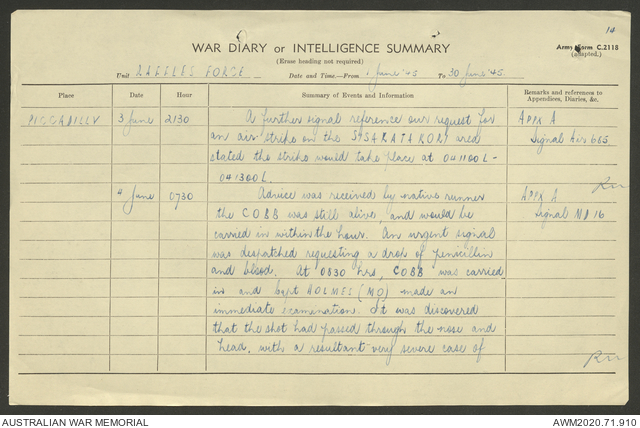 14
WAR DIARY or INTELLIGENCE SUMMARY
Army Form C.2118
(adapted.)
(Erase heading not required)
Unit RAFFLES FORCE Date and Time.—From 1 June '45 To 30 June '45.
Place Date Hour Summary of Events and Information Remarks and references to
Appendices, Diaries, &c.
PICCADILLY 3 June 2130 A further signal reference our request for APPX A
an air strike on the area Signal Air 665
stated the strike would take place at 041100L -
041300L.
4 June 0730 Advice was received by native runner APPX A
the COBB was still alive, and would be Signal 16
carried in within the hour. An urgent signal
was despatched requesting a drop of penicillin
and blood. At 0830 hrs, COBB was carried
in and Capt HOLMES (MO) made an
immediate examination. It was discovered
that the shot had passed through the nose and
head, with a resultant very severe case of
AUSTRALIAN WAR MEMORIAL
AWM2020.71.910